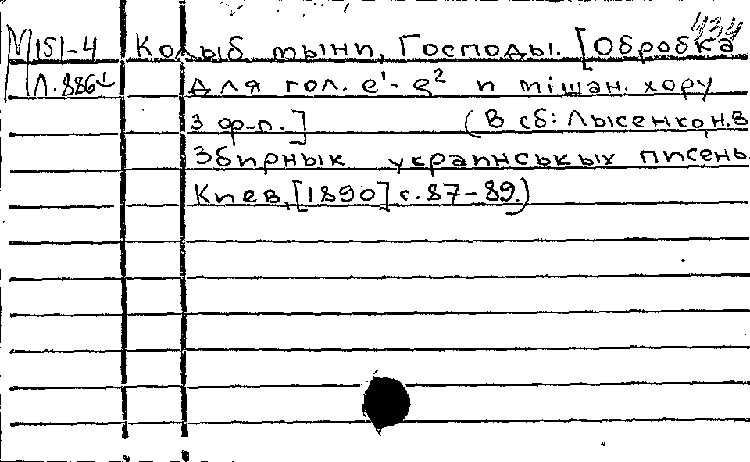 434
М 151-4 Колыб мыни, Господы. [Обробка
Л.886 для гол. e¹-g² п мішан. хору
з ф-п.] (В сб: Лысенко, н.В
Збирнык украпнськых писень.
Киев, [1890] с. 87-89.)